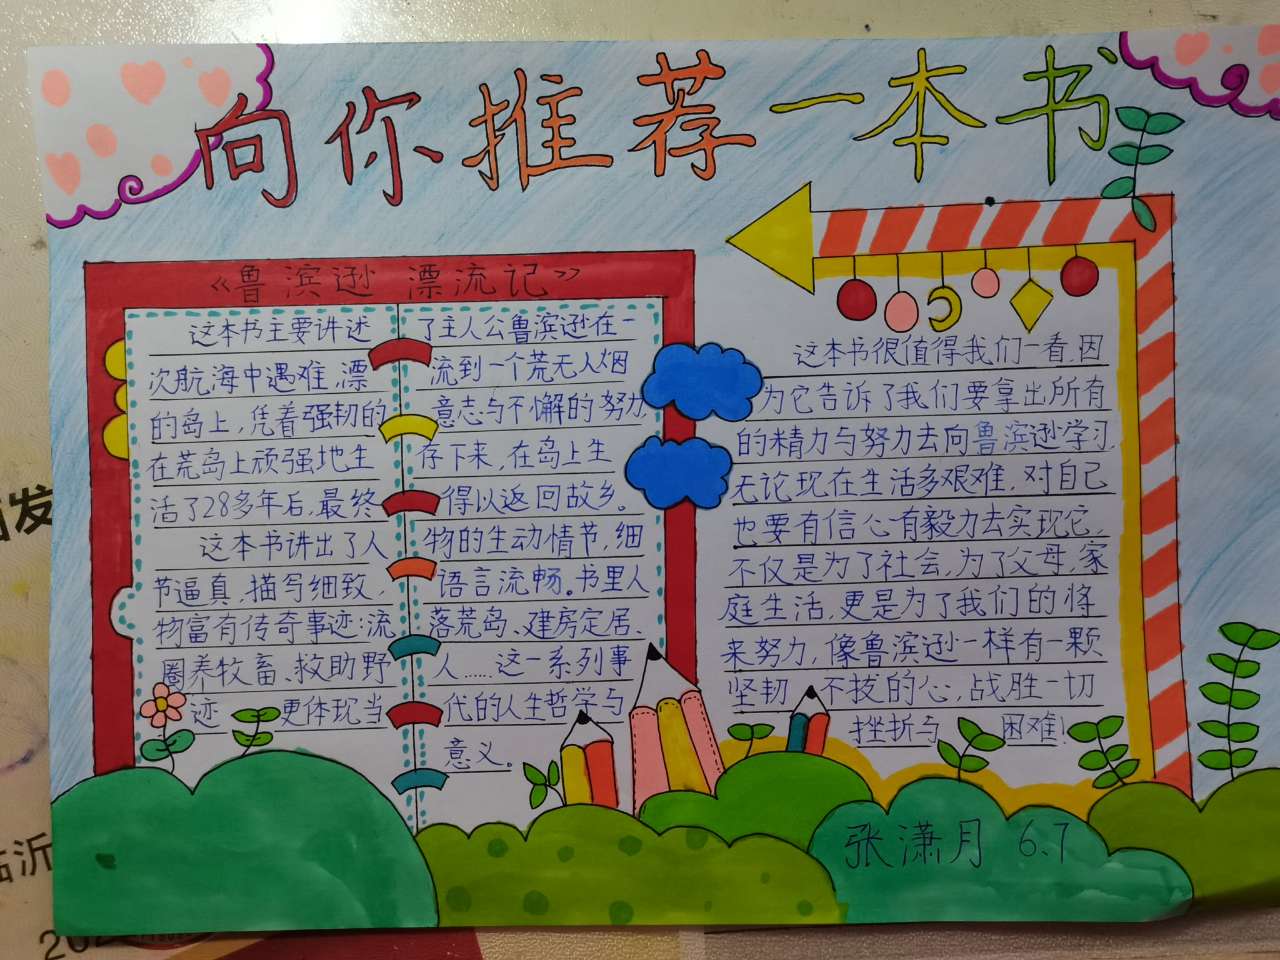 向你推荐一本书
《鲁滨逊 漂流记》
这本书主要讲述了主人公鲁滨逊在一
次航海中遇难,漂流到一个荒无人烟
的岛上,凭着强韧的意志与不懈的努力
在荒岛上顽强地生存下来,在岛上生
活了28多年后,最终得以返回故乡。
这本书讲出了人物的生动情节,细
节逼真,描写细致,语言流畅。书里人
物富有传奇事迹:流落荒岛、建房定居、
圈养牧畜、救助野人……这一系列事
迹更体现当代的人生哲学与
意义。
这本书很值得我们一看,因
为它告诉了我们要拿出所有
的精力与努力去向鲁滨逊学习,
无论现在生活多艰难,对自己
也要有信心有毅力去实现它,
不仅是为了社会,为了父母,家
庭生活,更是为了我们的将
来努力,像鲁滨逊一样有一颗
坚韧不拔的心,战胜一切
挫折与困难!
张潇月 6.7
临沂